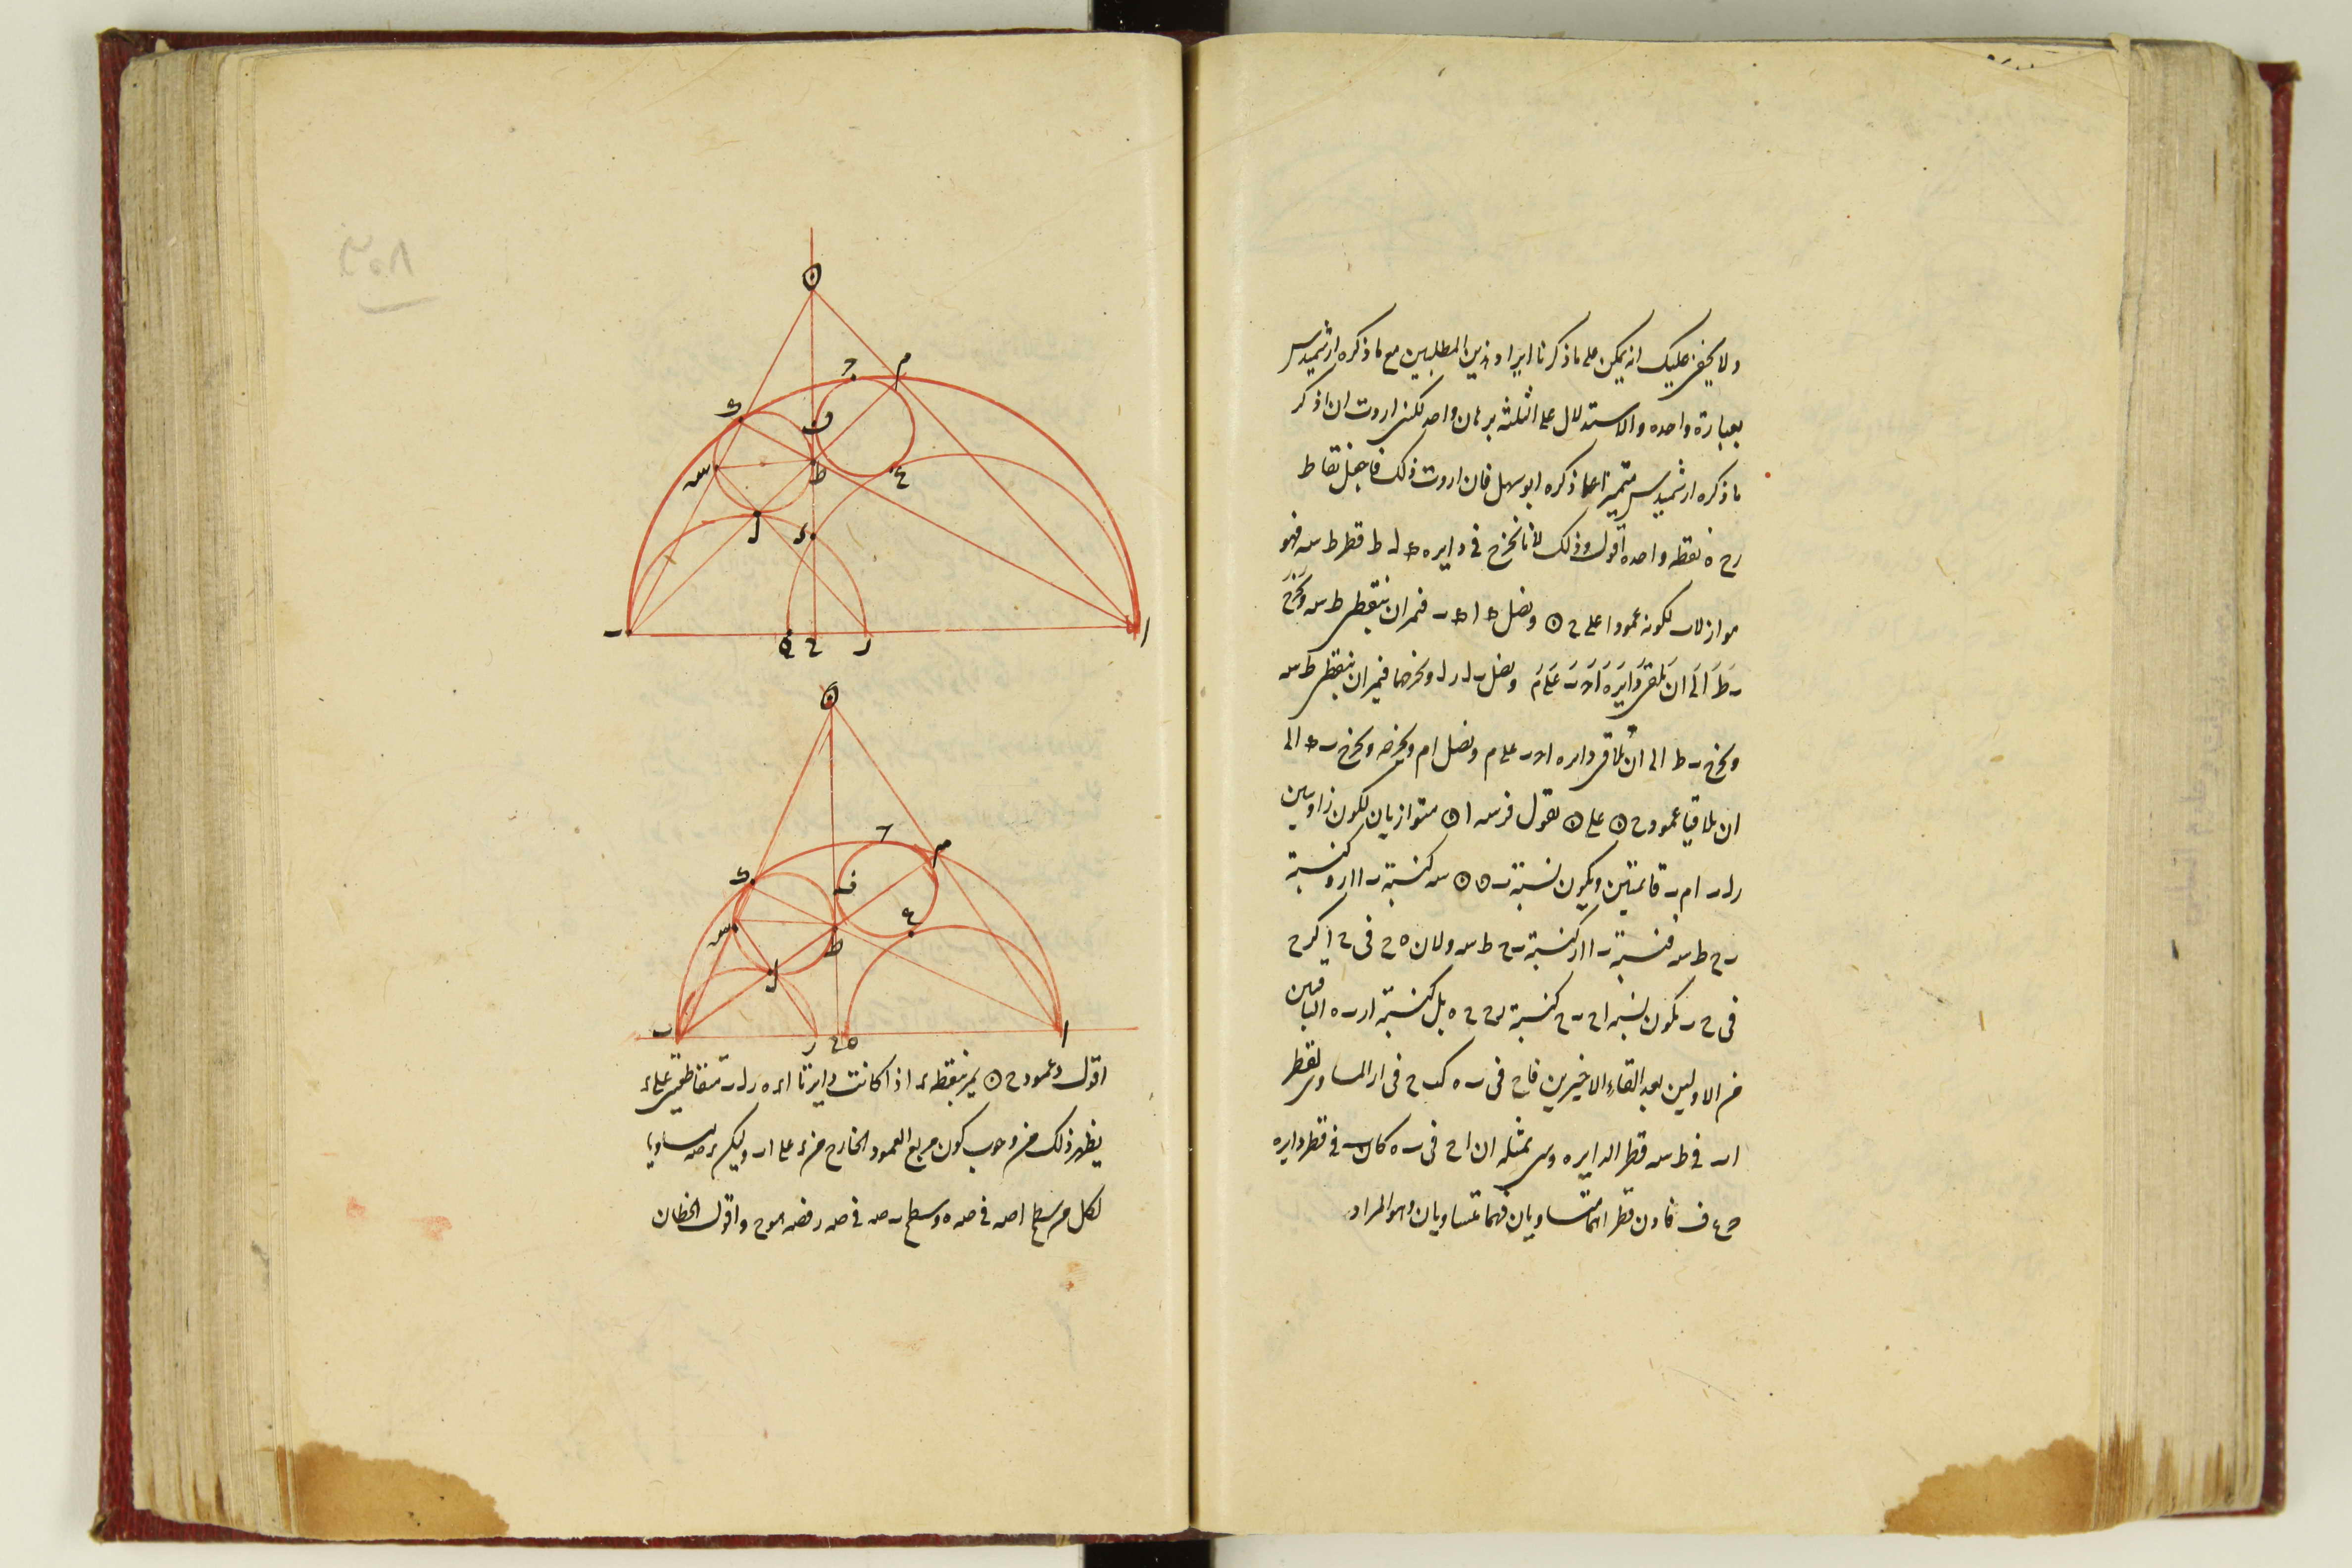 ولا يخفى عليك انه يمكن على ما ذكرنا ايراد هذين المطلبين مع ما ذكره ارشميدس
بعبارة واحده والاستدلال على الثلثه ببرهان واحد لكنى اردت ان اذكر
ما ذكره ارشميدس متميزا عما ذكره ابو سهل فان اردت ذلك فاجعل نقاط
ر ح ه نقطه واحده اقول وذلك لانا نخرج فى دايره ط قطر ط س فهو
مواز لا ب لكونه عمودا على ح ن ونصل فيمران بنقطتى ط س ونخرج
ب ط الى ان يلاقى دايره ا د ب على م ونصل ب ل ر ل ونخرجهما فيمران بنقطتى ط س
ونخرج ب ط الى ان يلاقى دايره ا د ب على م ونصل ا م ونخرجه ونخرج الى
ان يلاقيا عمود ح ن على ن نقول فر س ا ن متوازيان لكون زاويتين
ر ل ب ا م ب قائمتين ويكون نسبة ب ن ن س كنسبة ب ا ا ر وكنسبة
ب ح ط س فنسبة ب ا ا ر كنسبة ب ح ط س ولان ه ح فى ح ا كر ح
فى ح ب يكون نسبه ا ح ح ب كنسبة ر ح ح ه بل كنسبة ا ر ب ه الباقيين
من الاولين بعد القاء الاخيرين فاح فى ب ه كب ح فى ا ر المساوى لقطر
ا ب فى ط س قطر الدايره وبمثله ان ا ح فى ب ه كاب فى قطر دايره
ح ع ف فاذن قطراهما متساويان فهما متساويان وهو المراد
ن
ح
م
د
ف
س
ط
ع
ل
ب
ه
ح
ر
ا
ن
ح
م
د
ف
س
ط
ع
ل
ب
ر
ح
ه
ا
اقول وعمود ح ن يمر بنقطه ء اذا كانت دايرتا ا ء ه ر ل ب متقاطعتين على ء
يظهر ذلك من وجوب كون مربع العمود الخارج من ء على ا ب وليكن ء صه مساويا
لكل من سطح ا صه فى صه ه وسطح ب صه فى صه ر فصه هو ح واقول الخطان